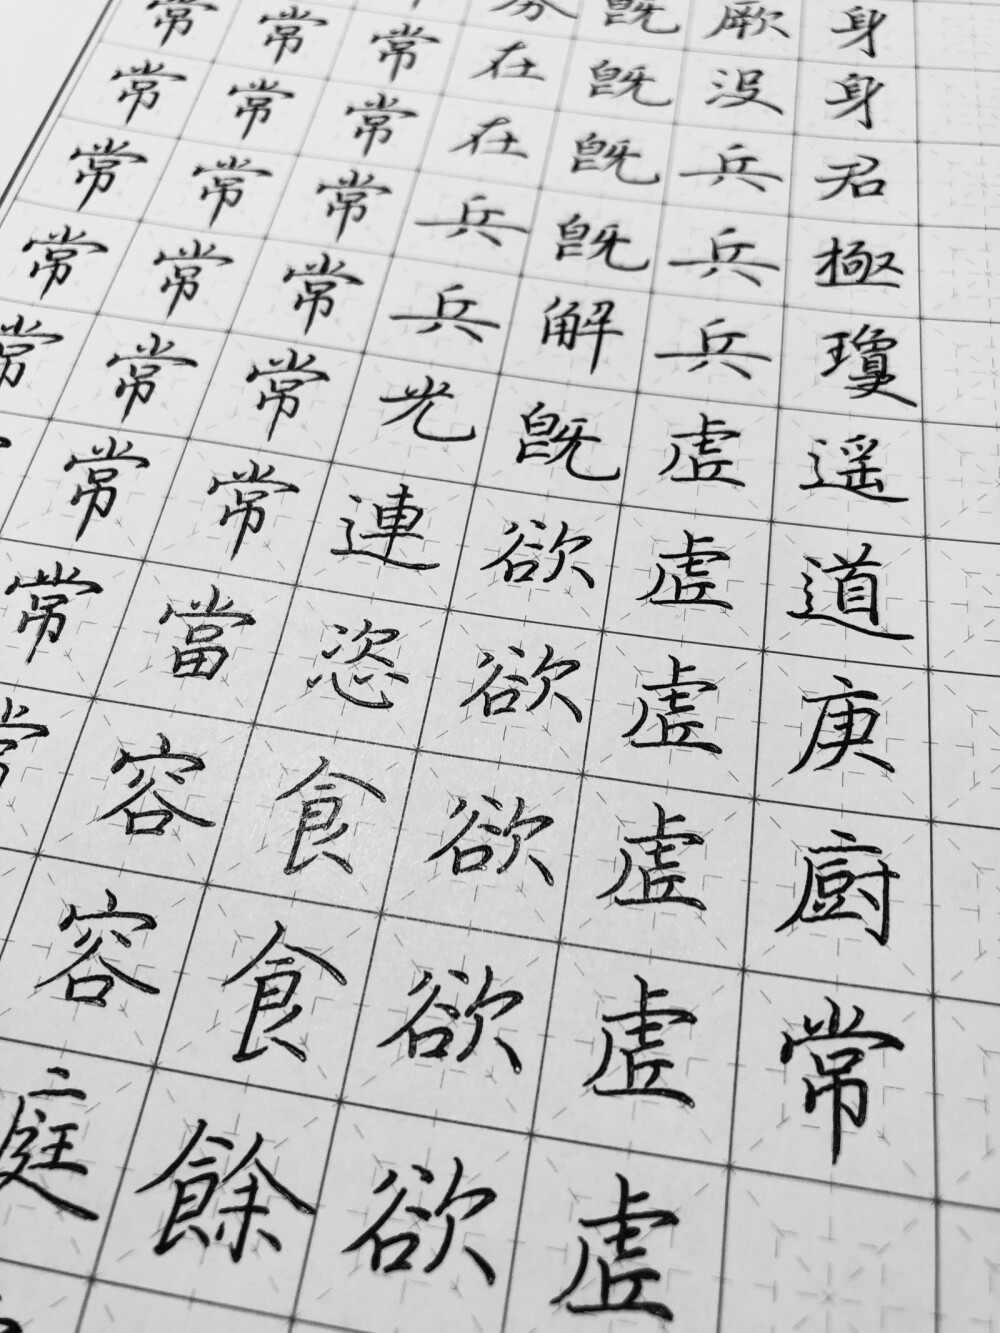 身身君極瓊遥道庚廚常
厥没兵兵兵虚虚虚虚虚虚
既既既既解既欲欲欲欲欲
在在兵兵光連恣食食餘
常常常常常常當容容庭
常常常常常常常常
常常常常常